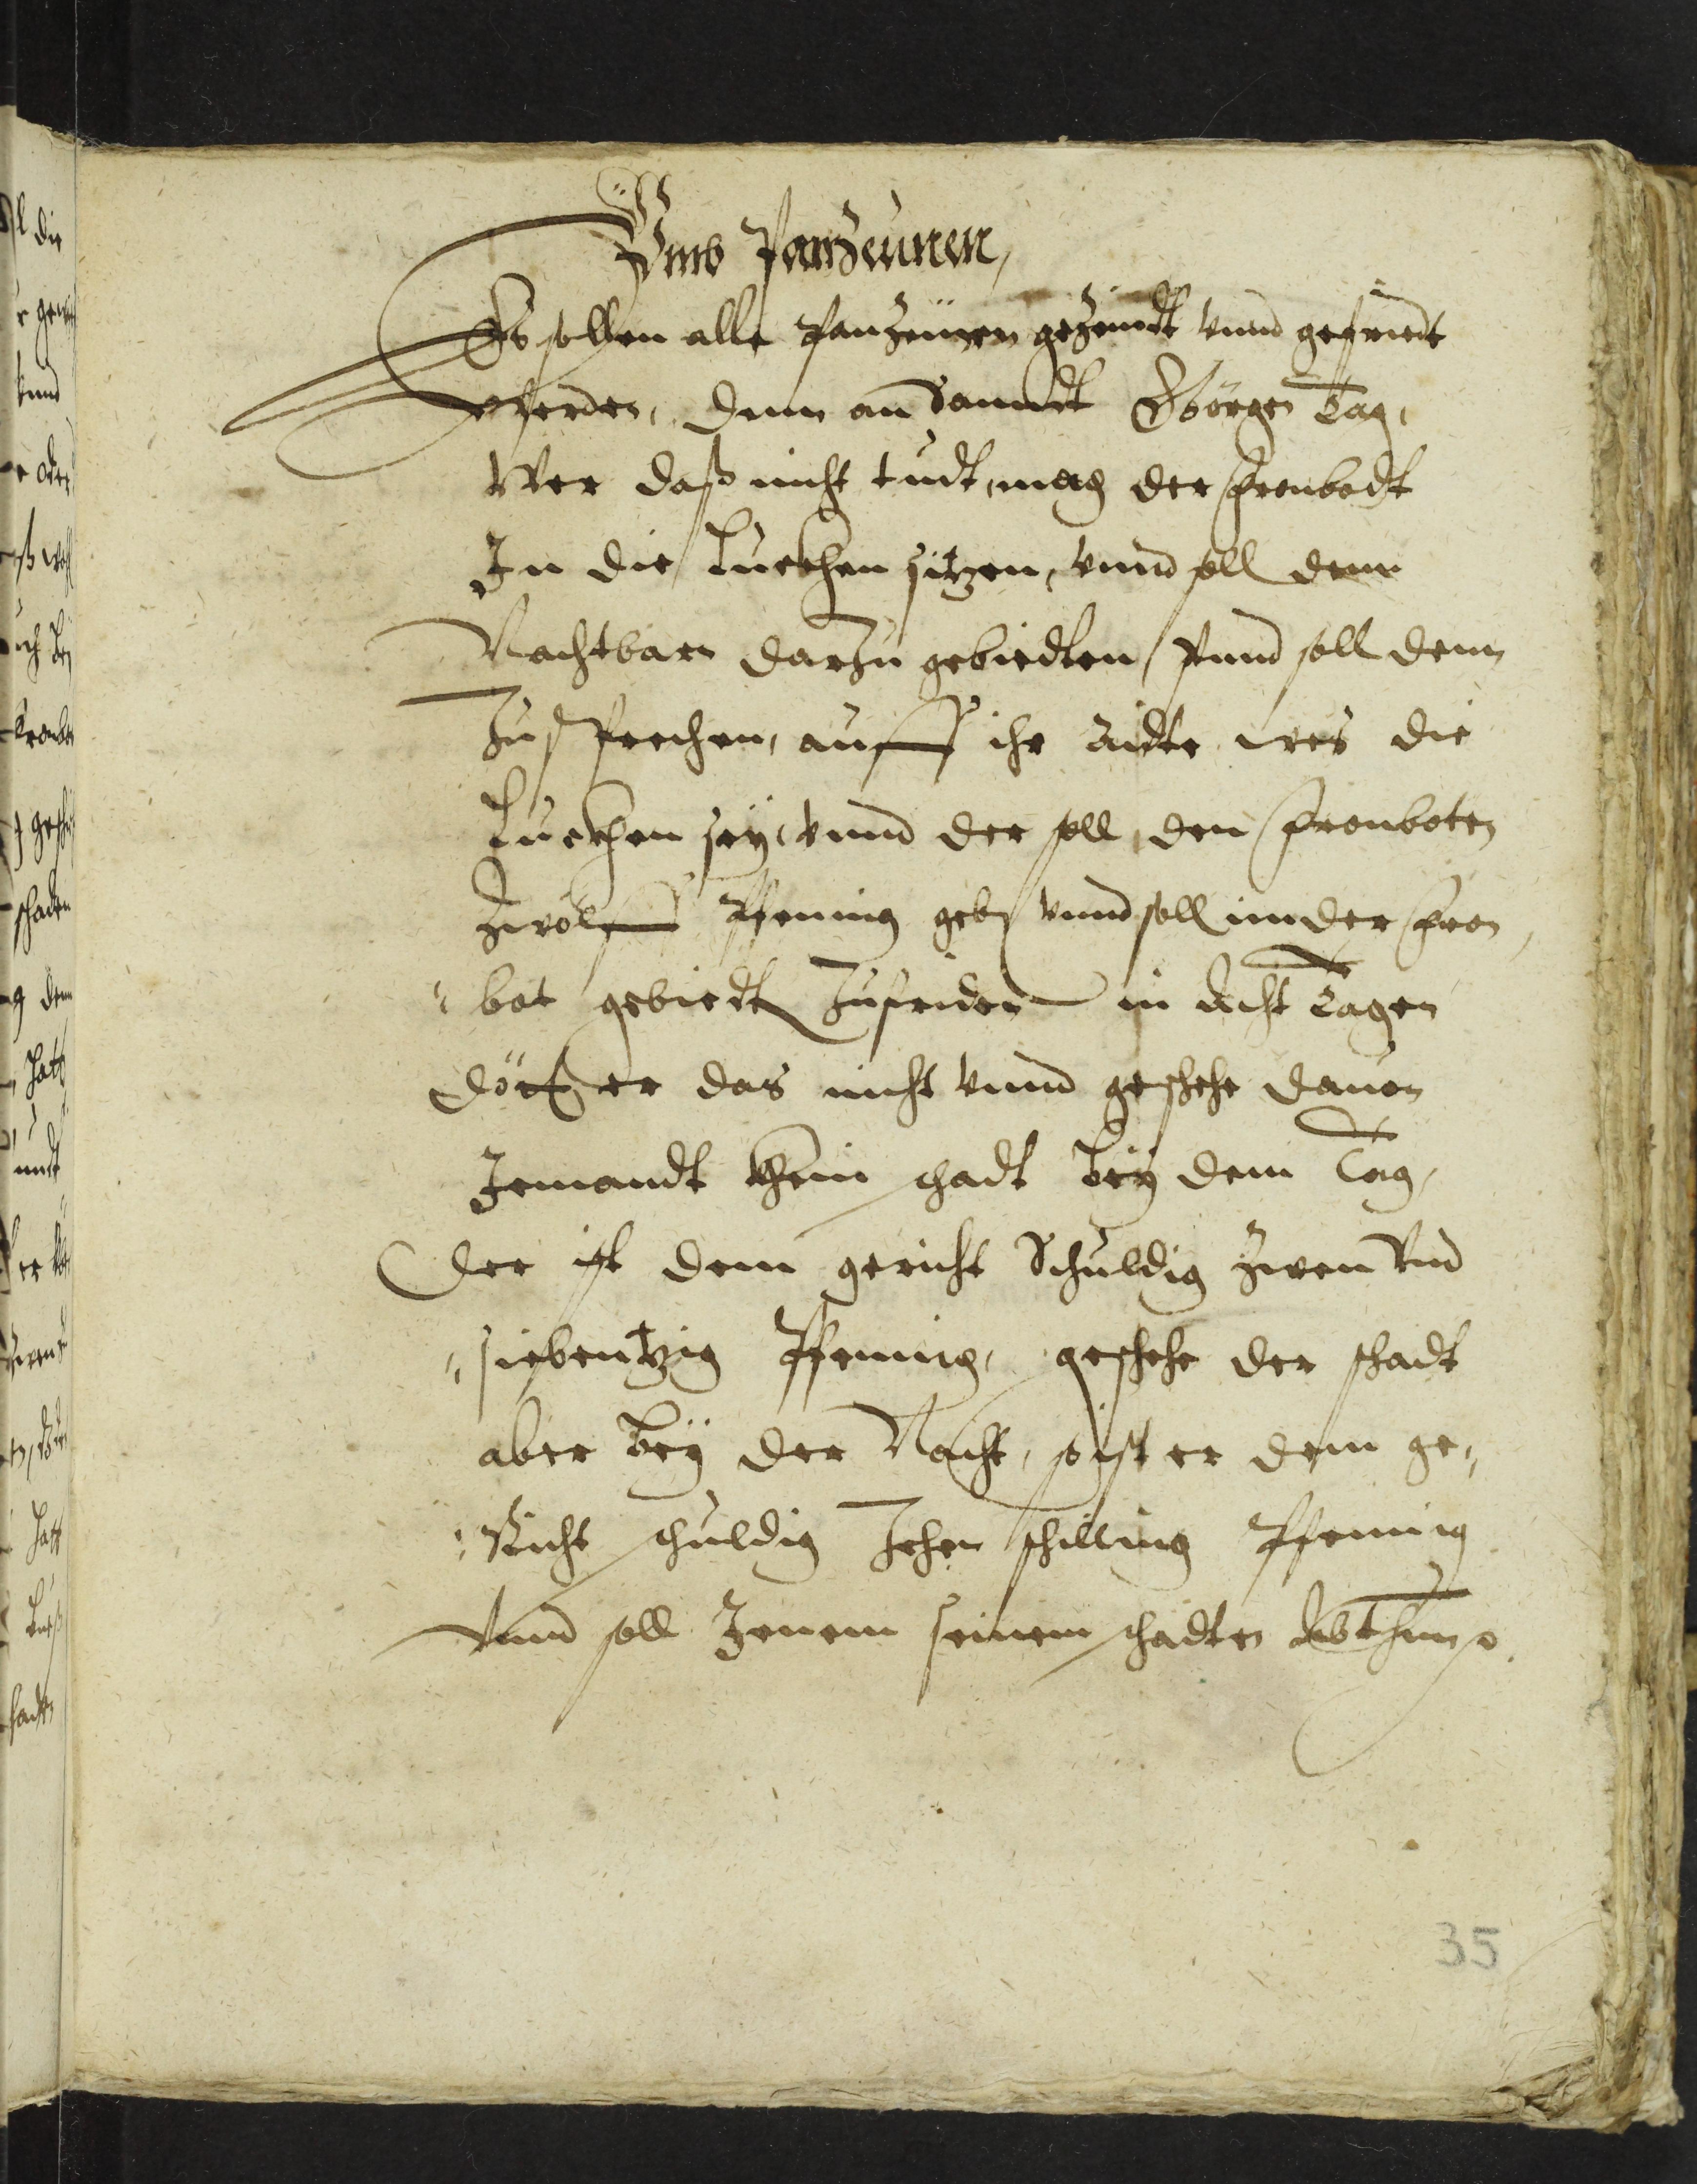 Vmb Panzeünen,
Es sollen alle Panzeünen gezeindt vnnd gefriedt
werden, denn an Sanndt Görgen Tag,
Wer daß nicht tudt, mag der fronbodt
In die Luckhen sitzen, vnnd soll denn
Nachtbarn darzu gebiedten, Vnnd soll denn
Zusprechen, auff ihr Aidte wes die
Luckhen sey, vnnd der soll den fronboten
zwölff Pfening geben vnnd soll im der fron
bot gebiedten Zufriden in Acht Tagen
Dött er das nicht vnnd geschehe dauon
Jemandt khein schadt bey dem Tag,
Der ist dem gericht Schuldig zwen Vnd
siebentzig Pfening, geschehe der schadt
aber bey der Nacht, so ist er dem ge„
Richt schuldig Zehen schilling Pfening
Vnnd soll Jenem seinem schadten Abthun.
35
die
vnnd